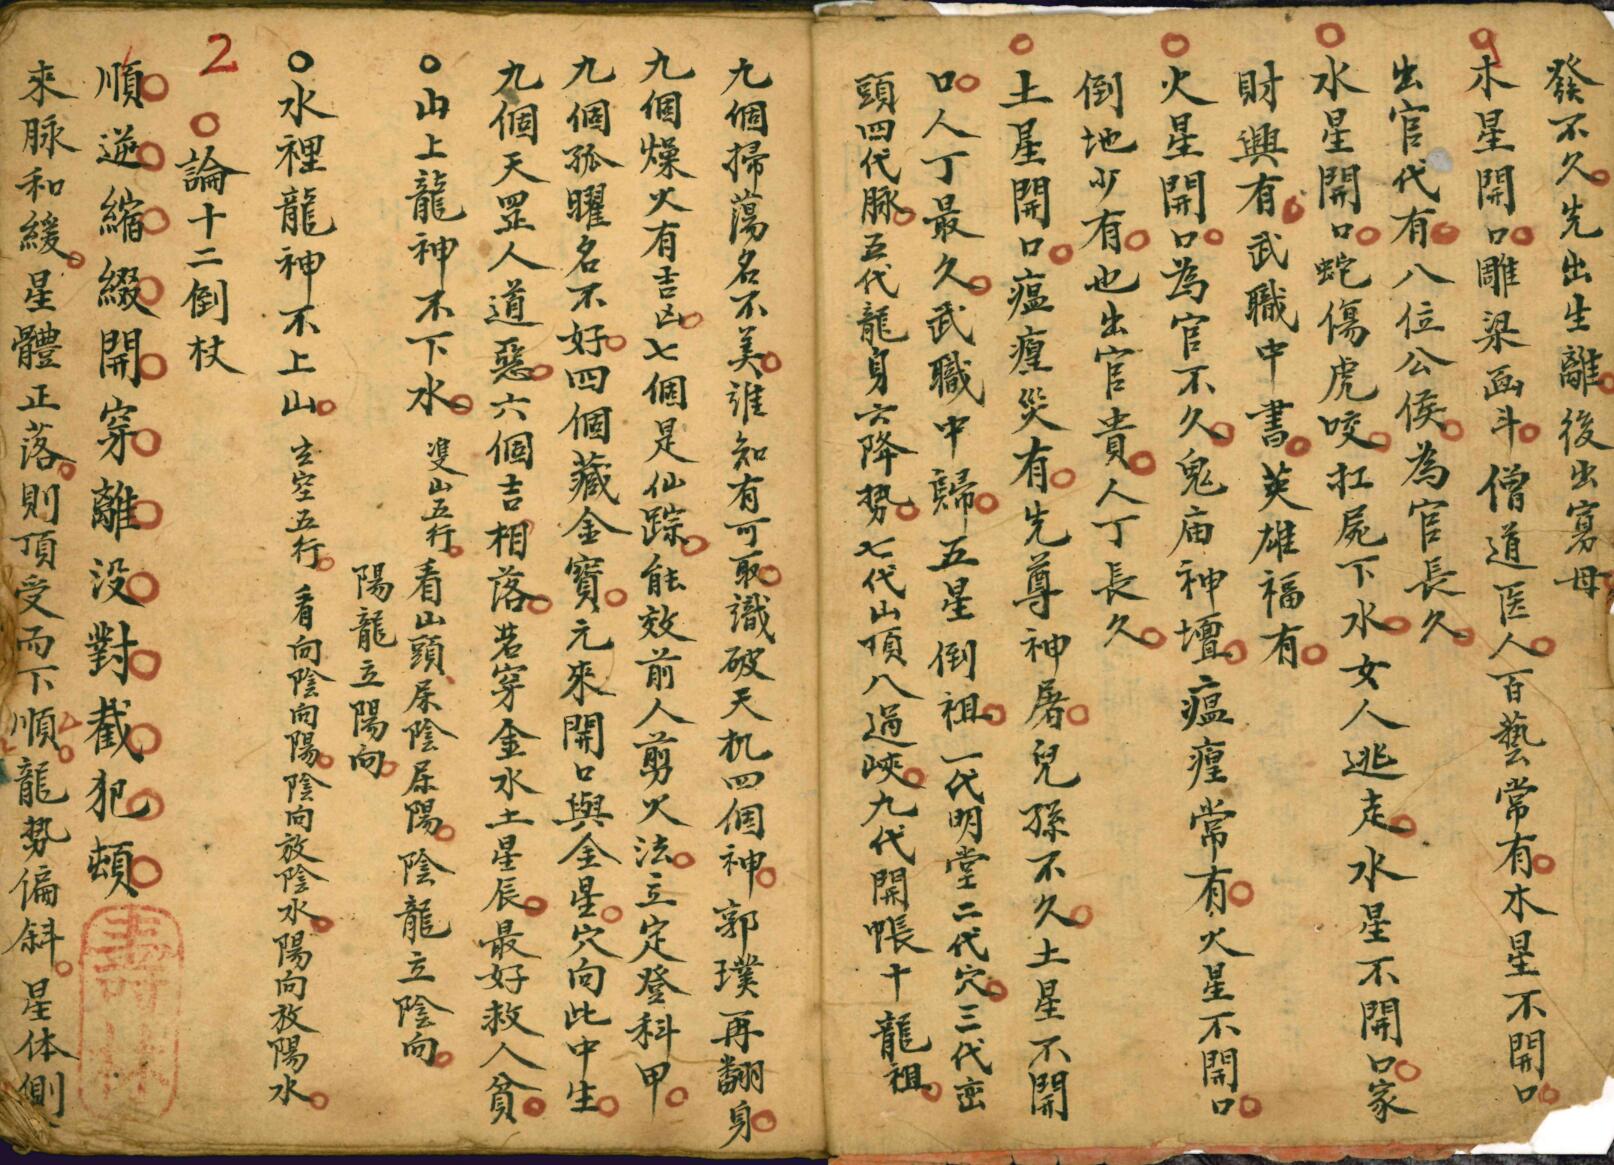 發不久先出生離後出寡母
木星開口雕梁画斗僧道医人百藝常有木星不開口
出官代有八位公侯為官長久
水星開口蛇傷虎咬扛屍下水女人逃走水星不開口家
財興有武職中書英雄福有
火星開口為官不久鬼庙神壇瘟瘟常有火星不開口
倒地少有也出官貴人丁長久
土星開口瘟瘟災有先尊神屠兒孫不久土星不開
口人人丁最久武職中歸五星倒祖一代明堂二代穴三代峦
頭四代脉五代龍身六降势七代山頂八過峽九代開帳十龍祖
九個掃蕩名不美誰知有可取識破天机四個神郭璞再翻身
九個燥火有吉凶七個是仙踪能效前人剪火法立定登科甲
九個孤曜名不好四個藏金寶元來開口與金星穴向此中生
九個天罡人道惡六個吉相落若穿金水土星辰最好救人貧
山上龍神不下水 雙山五行看山頭屖陰屖陽陰龍立陰向
陽龍立陽向
水裡龍神不上山 玄空五行看向陰向陽陰向放陰水陽向放陽水
2 論十二倒杖
順逆縮綴開穿離没對截犯頓
來脉和緩星體正落則頂受而下順龍勢偏斜星体側
壽林